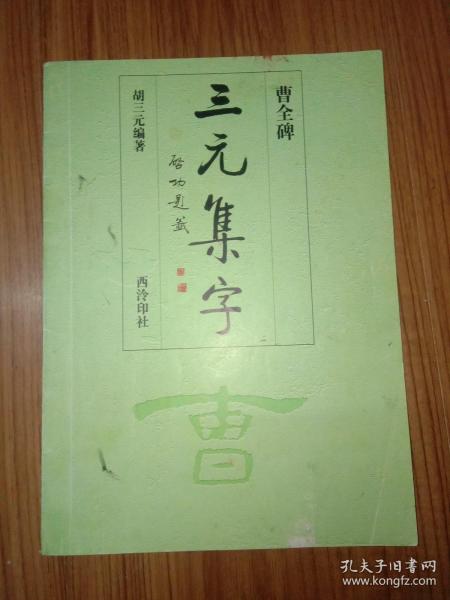 曹全碑
三元集字
启功题签
胡三元编著
西泠印社
曹
孔夫子旧书网
www.kongfz.com